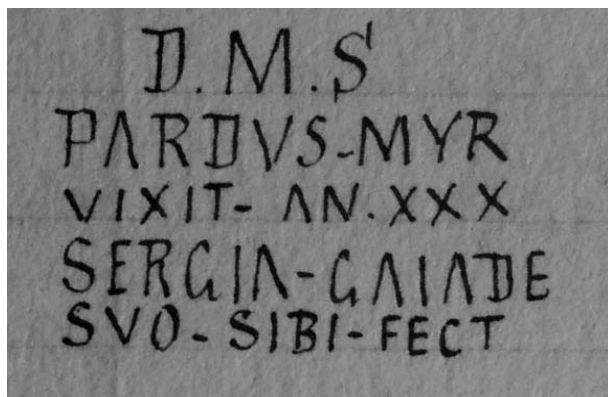 D.M.S
PARDVS-MYR
VIXIT- AN.XXX
SERGIA-GAIADE
SVO-SIBI-FECT